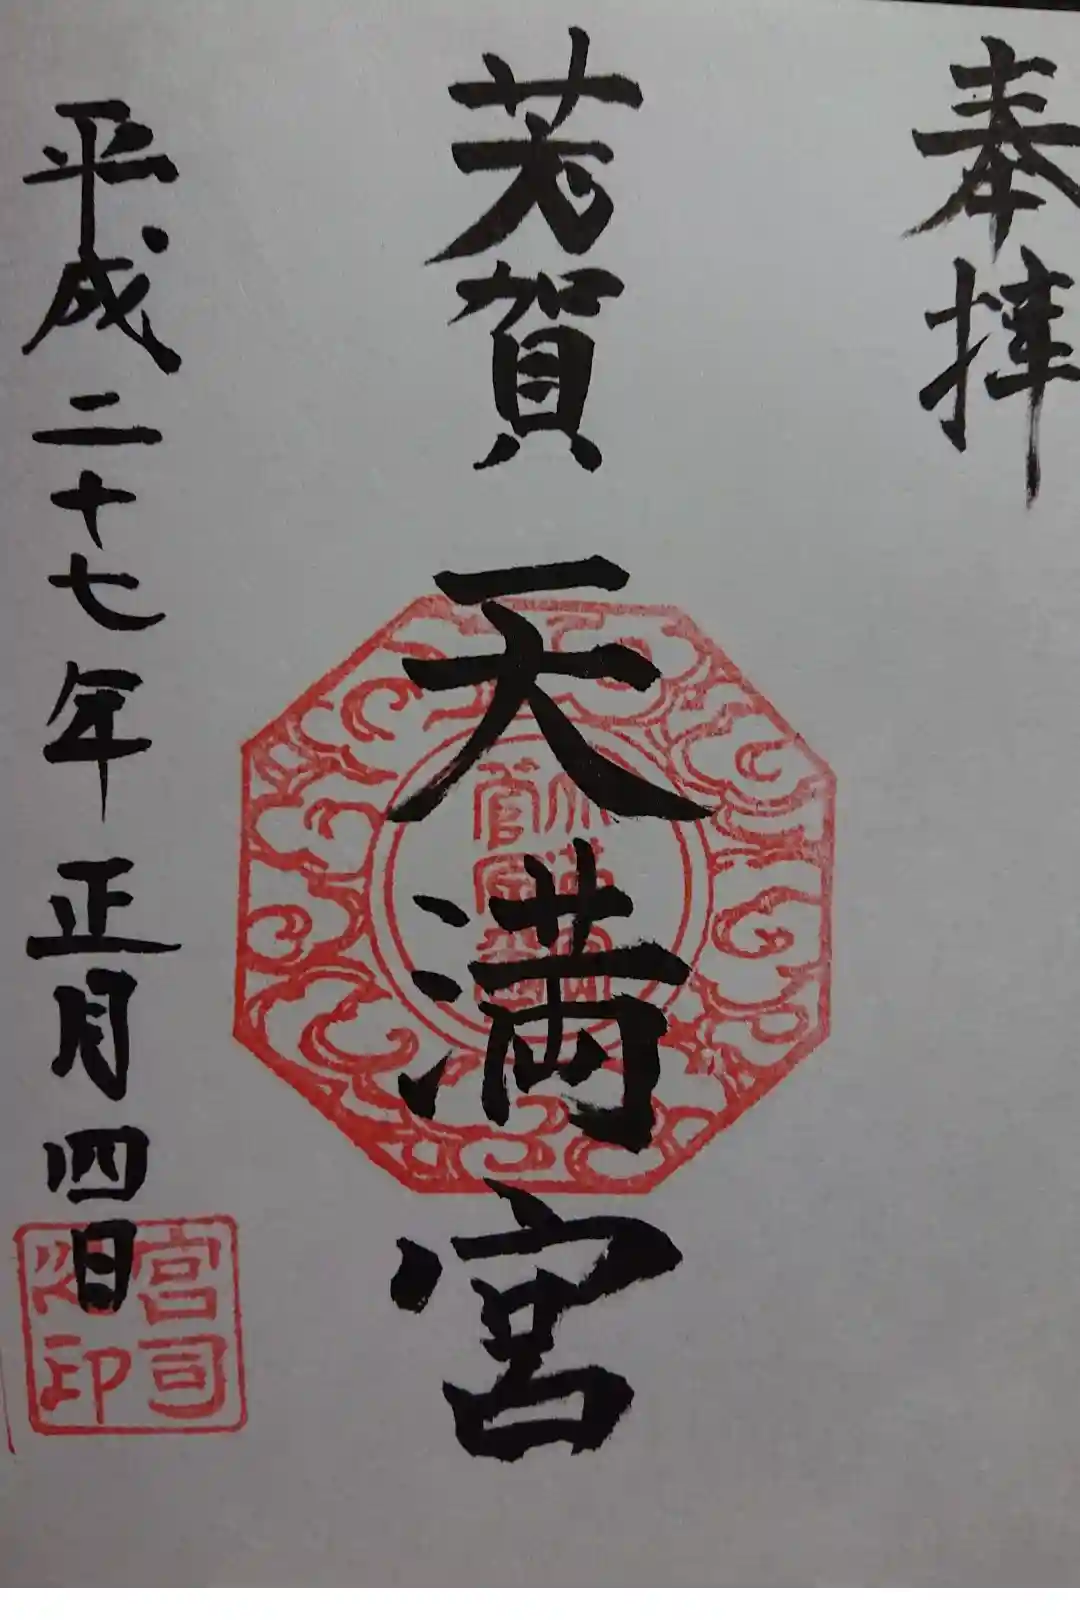 奉拝
芳賀天満宮
平成二十七年正月四日
宮司
之印